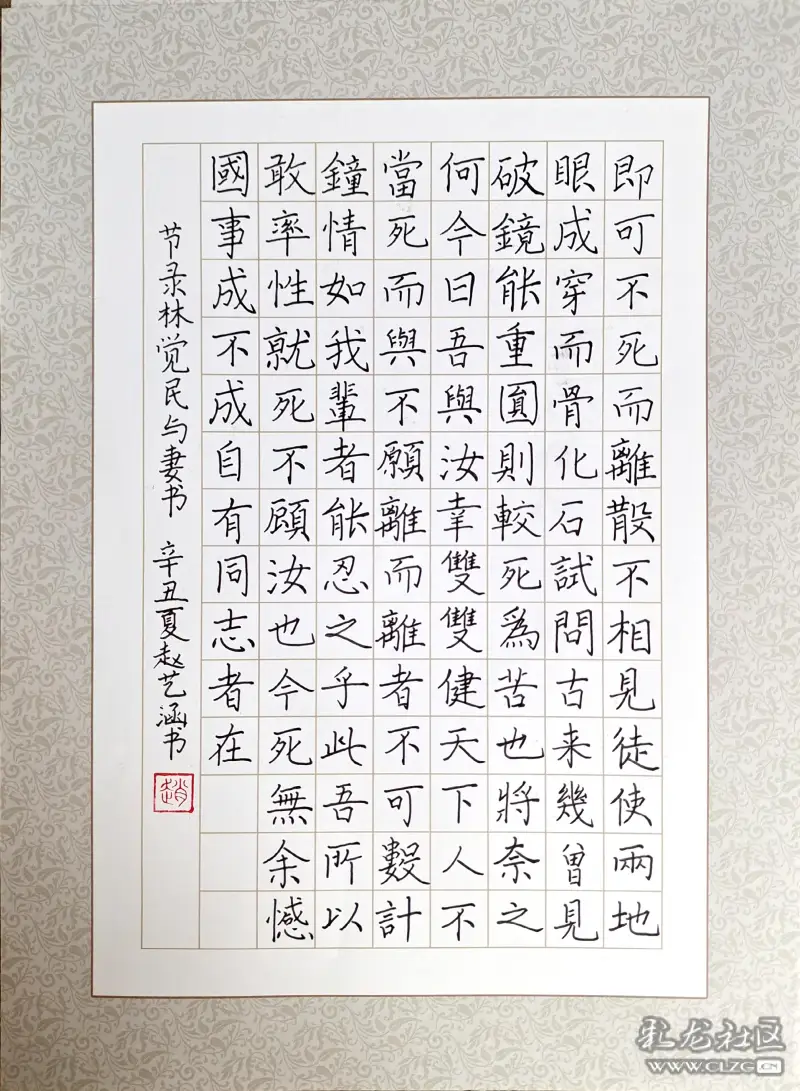 即可不死而離散不相見徒使兩地
眼成穿而骨化石試問古来幾曾見
破鏡能重圓則較死爲苦也將奈之
何今日吾與汝幸雙雙健天下人不
當死而與不願離而離者不可數計
鐘情如我輩者能忍之乎此吾所以
敢率性就死不顧汝也今死無余憾
國事成不成自有同志者在
节录林觉民与妻书 辛丑夏赵艺涵书
趙
爬龙社区
WWW.CLZG.CN